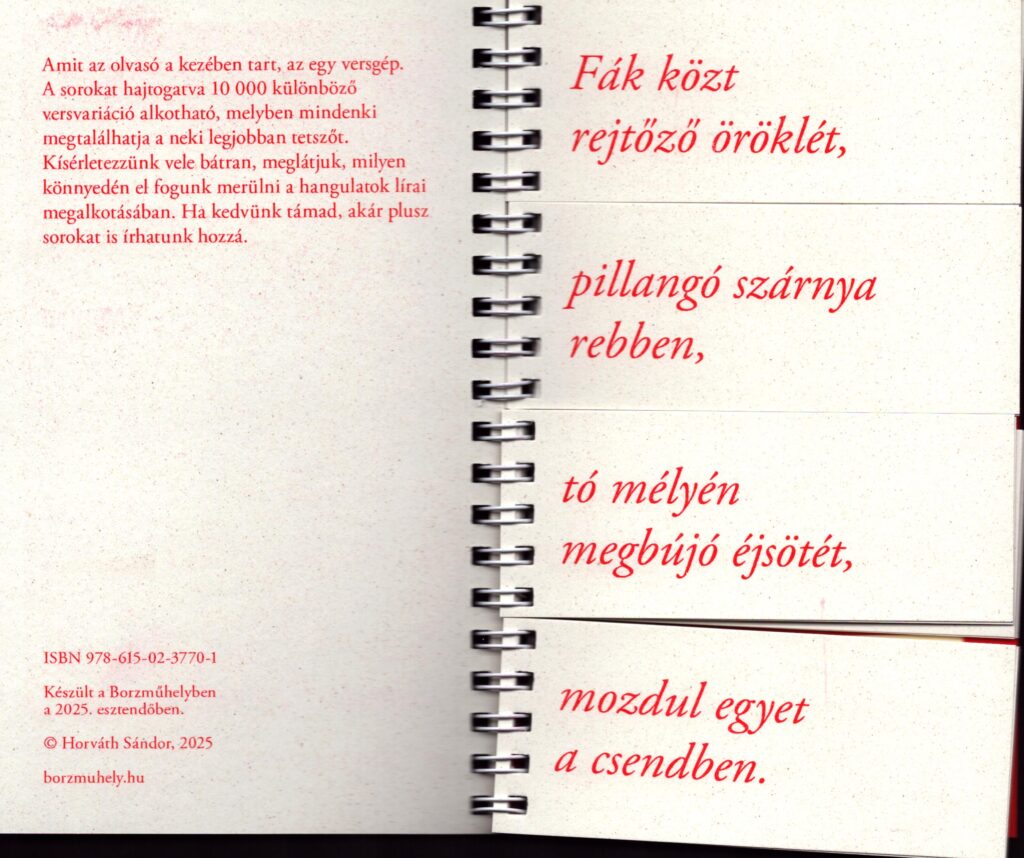 Amit az olvasó a kezében tart, az egy versgép.
A sorokat hajtogatva 10 000 különböző
versvariáció alkotható, melyben mindenki
megtalálhatja a neki legjobban tetszőt.
Kísérletezzünk vele bátran, meglátjuk, milyen
könnyedén el fogunk merülni a hangulatok lírai
megalkotásában. Ha kedvünk támad, akár plusz
sorokat is írhatunk hozzá.
ISBN 978-615-02-3770-1
Készült a Borzműhelyben
a 2025. esztendőben.
© Horváth Sándor, 2025
borzmuhely.hu
Fák közt
rejtőző öröklét,
pillangó szárnya
rebben,
tó mélyén
megbújó éjsötét,
mozdul egyet
a csendben.